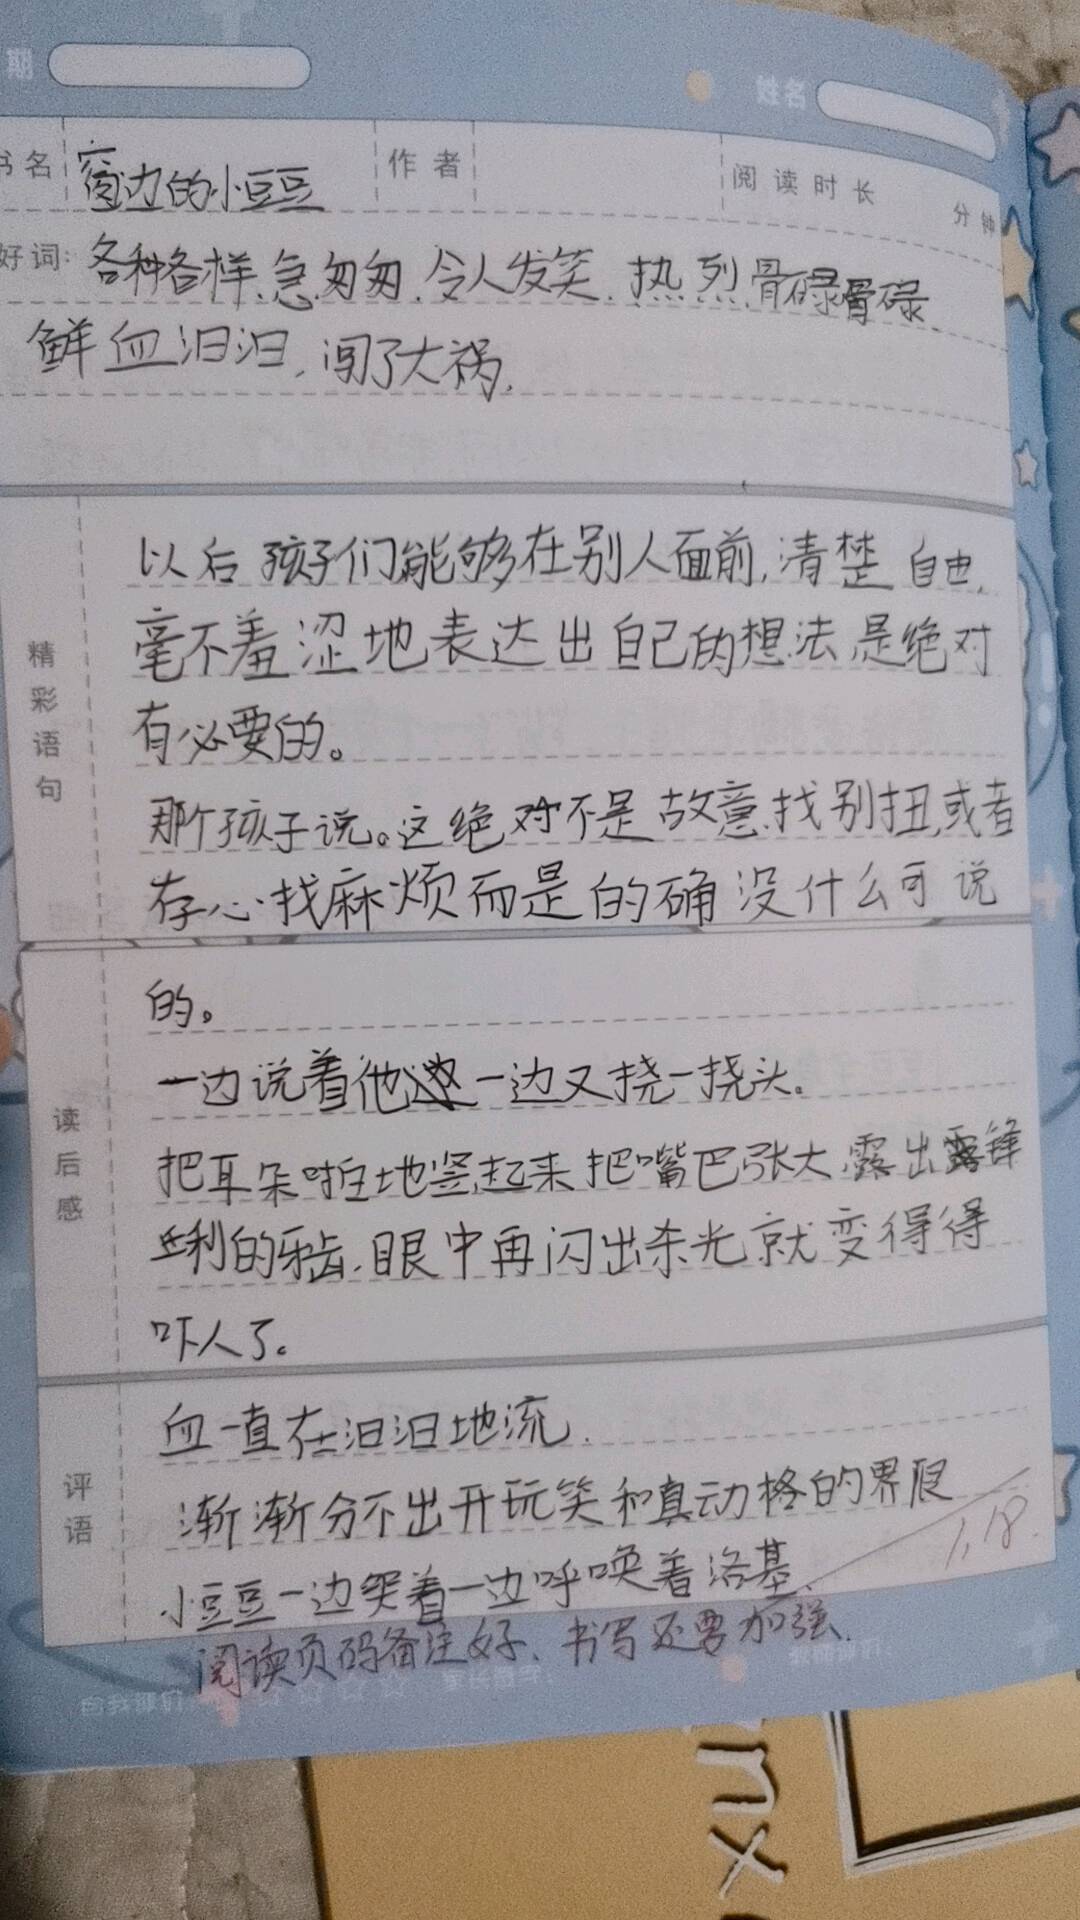 期
姓名
书名 窗边的小豆豆 作者 阅读时长 分钟
好词: 各种各样、急匆匆、令人发笑、热烈、骨碌骨碌、
鲜血汩汩、闯了大祸、
精彩语句
以后孩子们能够在别人面前,清楚自由,
毫不羞涩地表达出自己的想法,是绝对
有必要的。
那个孩子说。这绝对不是故意找别扭,或者
存心找麻烦而是的确没什么可说
读后感
的。
一边说着他一边又挠一挠头。
把耳朵啪地竖起来把嘴巴张大,露出锋
利的牙齿,眼中再闪出杀光,就变得得
吓人了。
评语
血一直在汩汩地流.
渐渐分不出开玩笑和真动格的界限
小豆豆一边笑着一边呼唤着洛基.
1.18.
阅读页码备注好、书写还要加强.